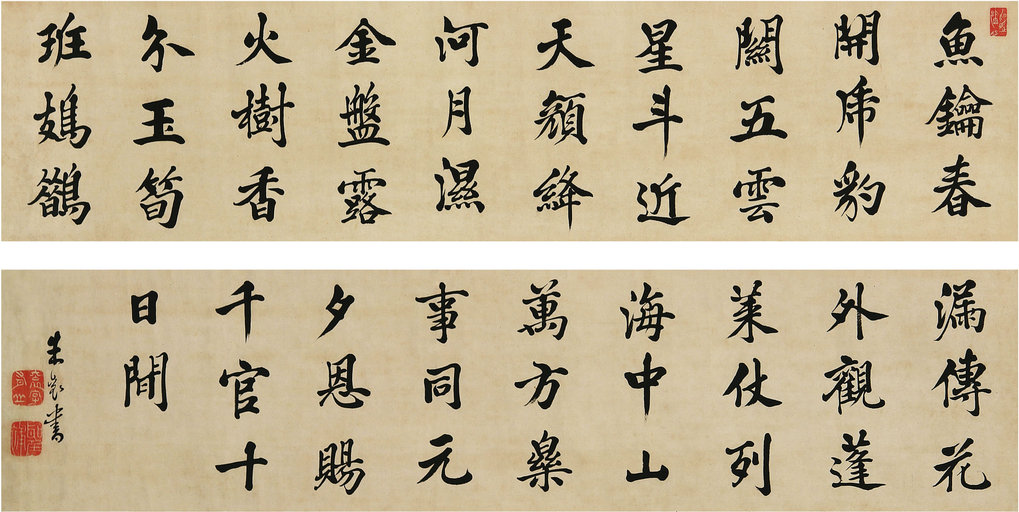 魚鑰春
開乕豹
關五雲
星斗近
天顏絳
河月濕
金盤露
火樹香
分玉筍
班鳷鵲
漏傳花
外觀蓬
萊仗列
海中山
萬方樂
事同元
夕恩賜
千官十
日閒
朱書